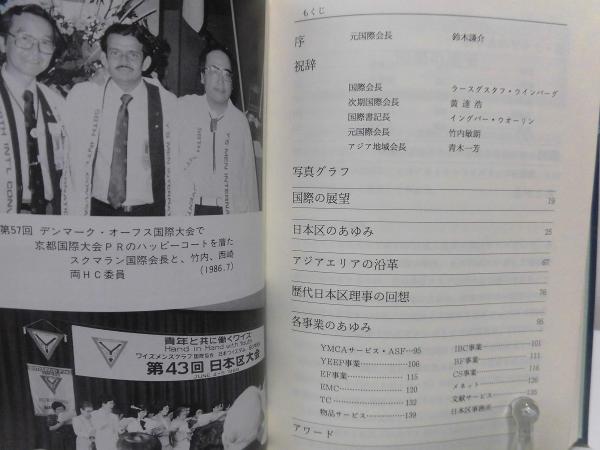 Y'S MEN INTERNATI
第57回 デンマーク・オーフス国際大会で
京都国際大会PRのハッピーコートを着た
スクマラン国際会長と、竹内、西崎
両HC委員 (1986.7)
青年と共に働くワイズ
Hand in Hand with Youth
第43回 日本区大会
もくじ
序 元国際会長 鈴木謙介
祝辞
国際会長 ラースグスタフ・ウインバーグ
次期国際会長 黄達浩
国際書記長 イングバー・ウオーリン
元国際会長 竹内敏朗
アジア地域会長 青木一芳
写真グラフ
国際の展望 19
日本区のあゆみ 25
アジアエリアの沿革 67
歴代日本区理事の回想 76
各事業のあゆみ 95
YMCAサービス・ASF…95 IBC事業 101
YEEP事業 106 BF事業 111
EF事業 115 CS事業 116
EMC 120 メネット 126
TC 132 文献サービス 135
物品サービス 139 日本区事務所
アワード